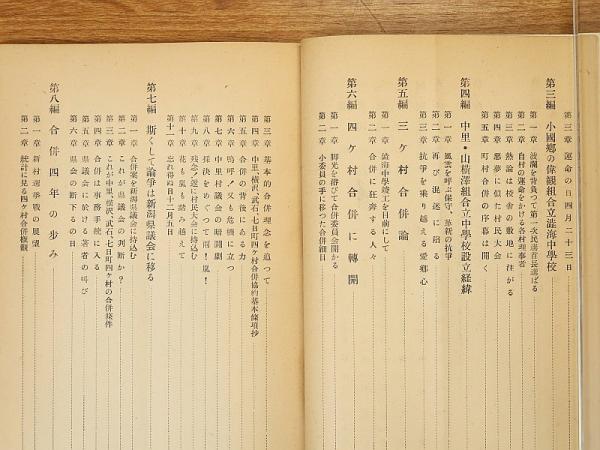 第三章 運命の日四月二十三日
第三編 小國郷の偉観組合立澁海中學校
第一章 波瀾を背負つて第一次民選首長選ばる
第二章 自村の運命をかける各村理事者
第三章 熱論は校舎の敷地に注がる
第四章 悪夢に似た村民大会
第五章 町村合併の序幕は開く
第四編 中里・山横澤組合立中學校設立経緯
第一章 風雲を呼ぶ保守、革新の抗争
第二章 再び混迷に陥る
第三章 抗爭を乗り越える愛郷心
第五編 三ケ村合併論
第一章 澁海中學竣工を目前にして
第二章 合併に狂奔する人々
第六編 四ケ村合併に轉開
第一章 脚光を浴びて合併委員会開かる
第二章 小委員の手に移つた合併細目
第三章 基本的合併理念を追つて
第四章 中里、横沢、武石、七日町四ケ村合併協約基本條項抄
第五章 合併の背後にある力
第六章 嗚呼！又も危機に立つ
第七章 中里村議会の暗闘劇
第八章 採決をめぐつて雨！嵐！
第九章 残念！遂に村民大会に持込む
第十章 花も実も踏み越えて
第十一章 忘れ得ぬ日十二月五日
第七編 斯くして論爭は新潟県議会に移る
第一章 合併案を新潟県議会に持込む
第二章 これが県議会の判断か？
第三章 これが中里、横沢、武石、七日町四ケ村の合併條件
第四章 合併は事務手続に入る
第五章 県議会に於ける著者の叫び
第六章 県会の断下るの日
第八編 合併四年の歩み
第一章 新村選挙戦の展望
第二章 統計に見る四ケ村合併概観